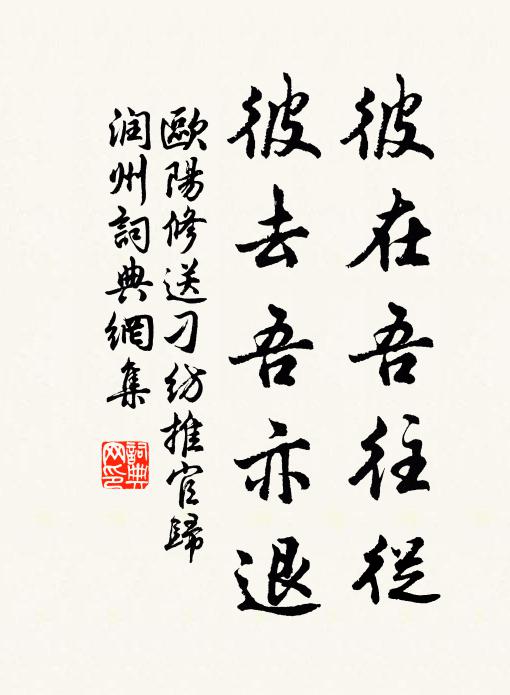 彼在吾往從
彼去吾亦退
歐陽修送刁紡推官歸
润州詞典網集
詞典
网印